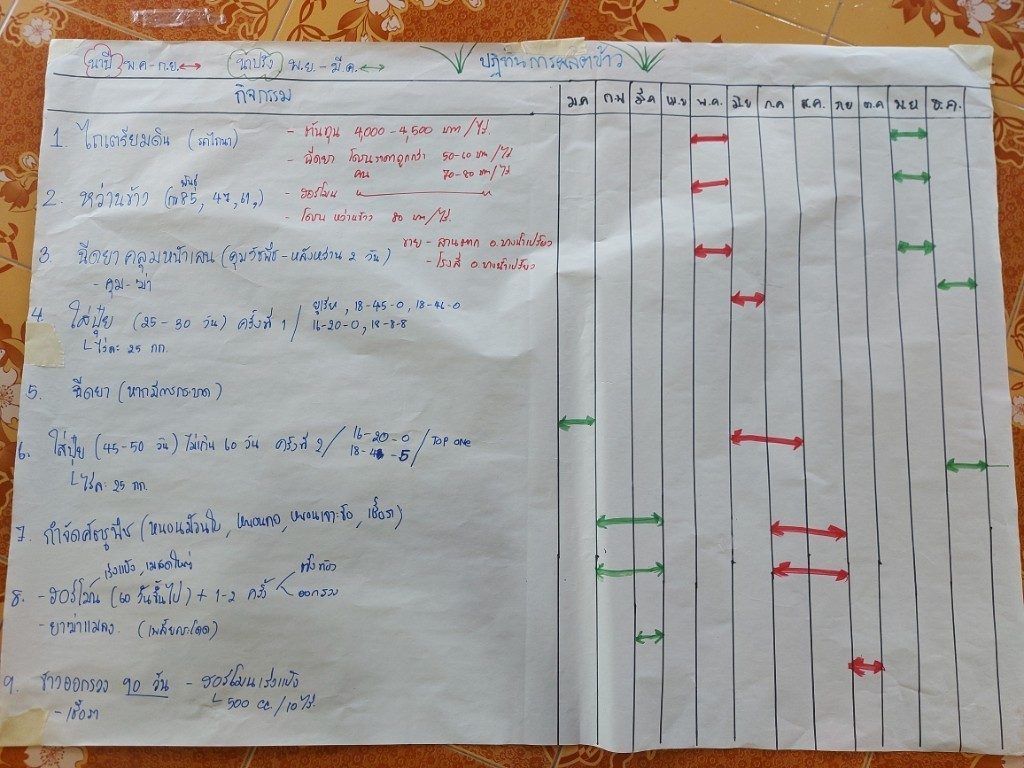 นาปี พ.ค-ก.ย. นาปรัง พ.ย - มี.ค. ปฏิทินการผลิตข้าว
กิจกรรม ม.ค ก.พ มี.ค เม.ย พ.ค. มิ.ย ก.ค ส.ค. ก.ย ต.ค พ.ย ธ.ค.
1. ไถเตรียมดิน (รถไถนา)
- ต้นทุน 4,000 - 4,500 บาท/ไร่.
- ฉีดยา โดรนราคาถูกกว่า 50-60 บาท/ไร่
คน 70-80 บาท/ไร่
2. หว่านข้าว (กข 85, 47, 61,)
พันธุ์
- ฮอร์โมน
- โดรน หว่านข้าว 80 บาท/ไร่.
3. ฉีดยาคลุมหน้าเลน (คุมวัชพืช - หลังหว่าน 2 วัน)
- คุม - ฆ่า
ขาย - ลานตาก อ.บางน้ำเปรี้ยว
- โรงสี อ.บางน้ำเปรี้ยว
4 ใส่ปุ๋ย (25 - 30 วัน) ครั้งที่ 1 / ยูเรีย, 18-45-0, 18-46-0
16-20-0, 18-8-8
ไร่ละ 25 กก.
5. ฉีดยา (หากมีการระบาด)
6. ใส่ปุ๋ย (45-50 วัน) ไม่เกิน 60 วัน ครั้งที่ 2 / 16-20-0 / TOP ONE
ไร่ละ 25 กก.
7. กำจัดศัตรูพืช (หนอนม้วนใบ, หนอนกอ, หนอนเจาะข้อ, เชื้อรา)
เร่งแป้ง, เมล็ดใหญ่
8. - ฮอร์โมน (60 วันขึ้นไป) + 1-2 ครั้ง ตั้งท้อง
ออกรวง
- ยาฆ่าแมลง (เพลี้ยกระโดด)
9. ข้าวออกรวง 90 วัน - ฮอร์โมนเร่งแป้ง
- เชื้อรา
500 cc./10 ไร่.